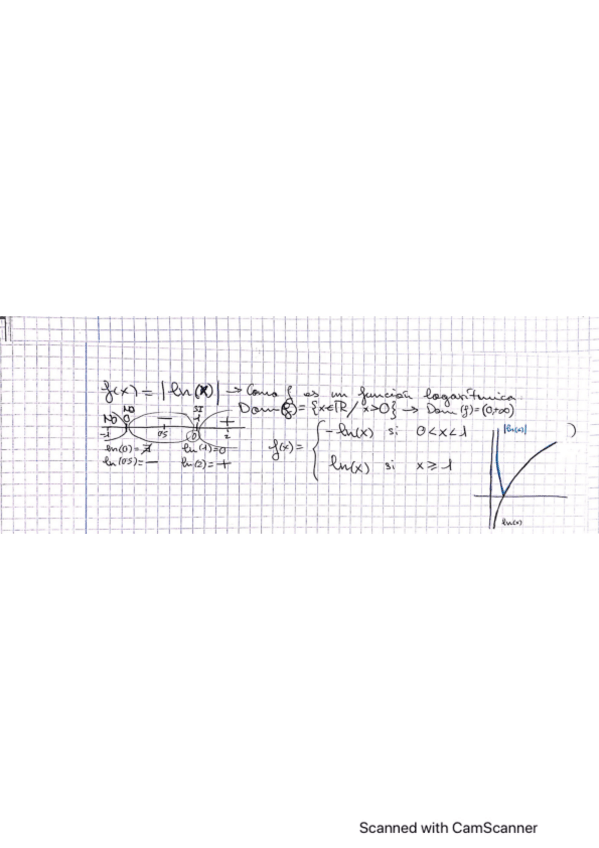 f(x) = |ln(x)| → Como f es un función logarítmica.
Dom(f) = {x∈ℝ / x>0} → Dom(f) = (0,+∞)
NO NO 0 − SI 1 +
-1 0'5 0 2
ln(0) = ∄ ln(1) = 0
ln(0'5) = − ln(2) = +
f(x) = { -ln(x) si 0<x<1
ln(x) si x ≥ 1
)
|ln(x)|
ln(x)
Scanned with CamScanner